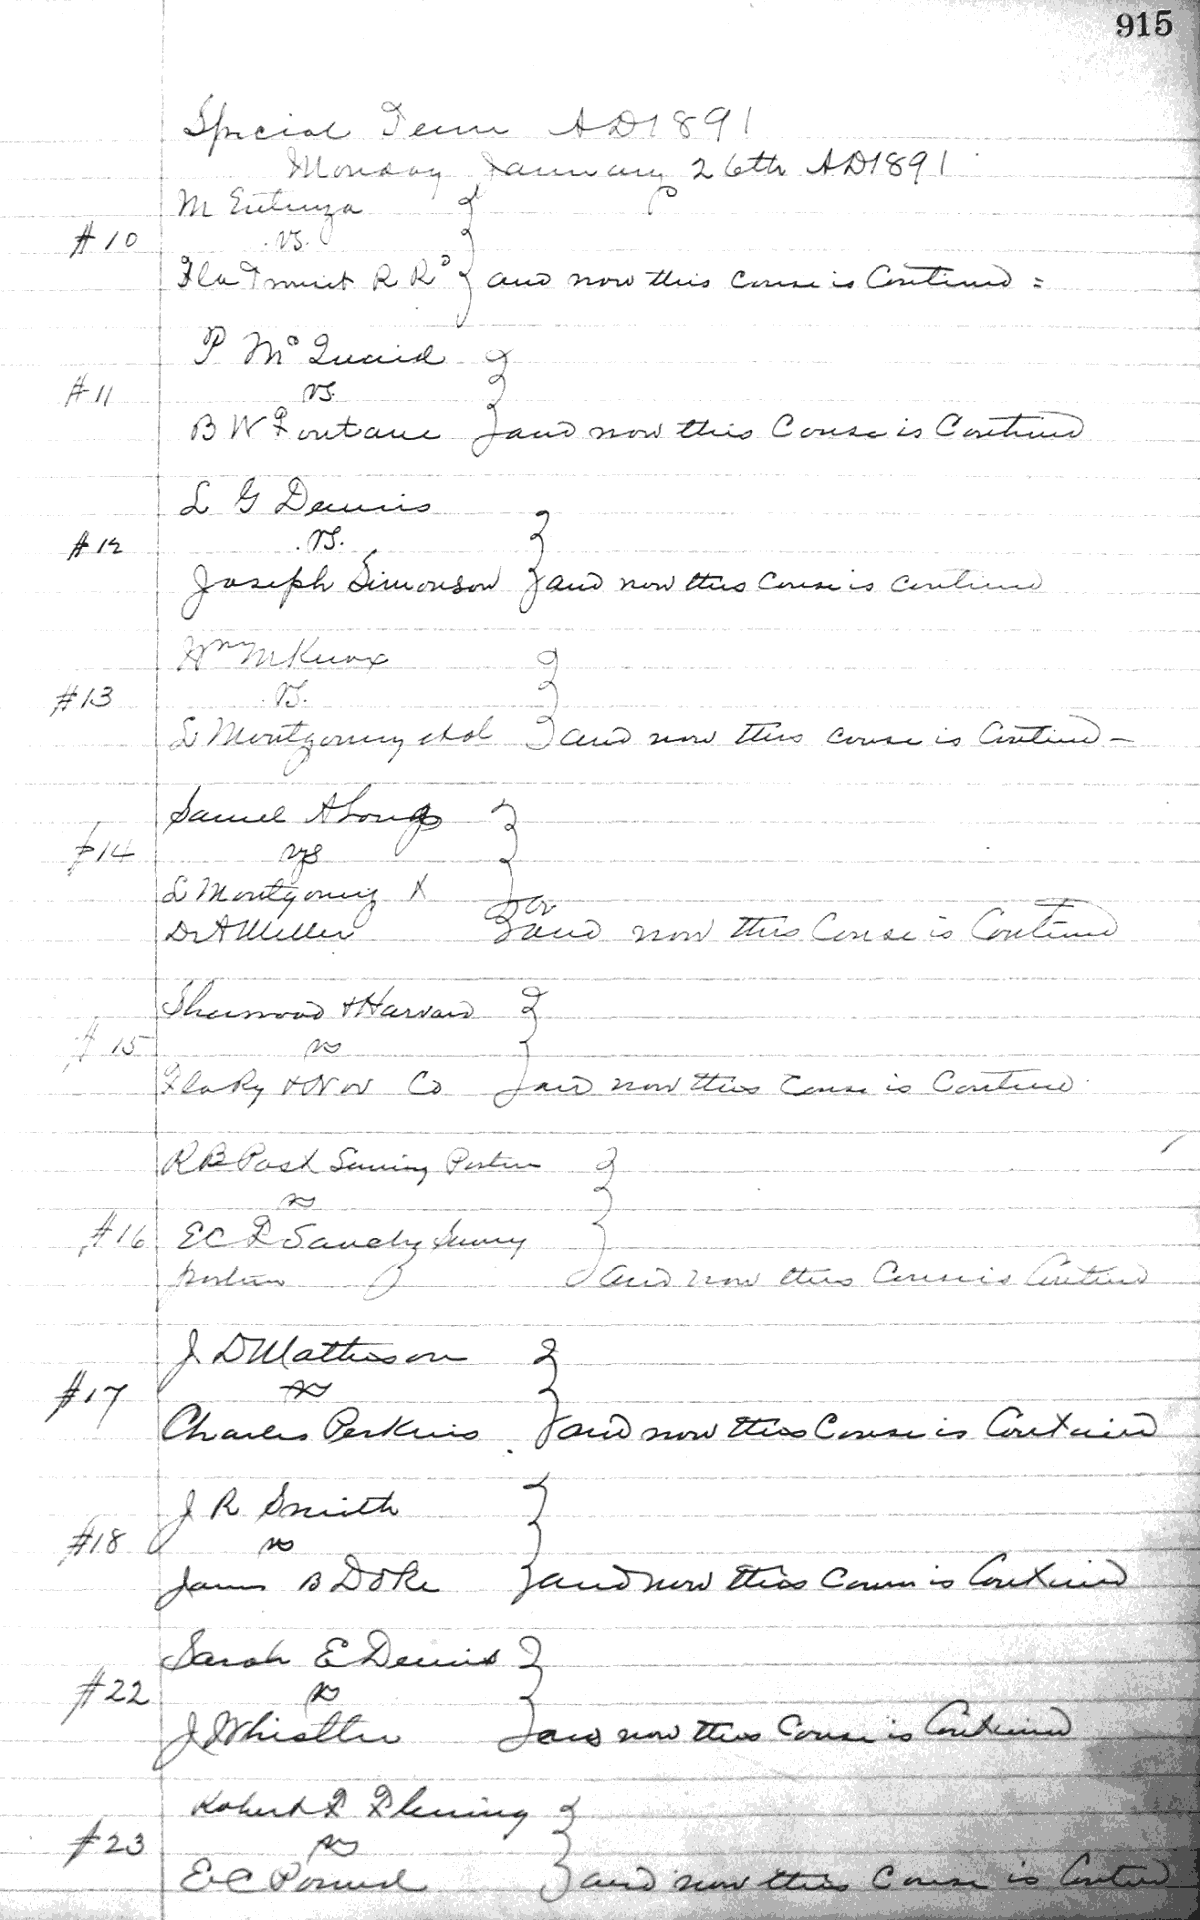 915
Special Term AD 1891
Monday January 26th AD 1891
M Entenza
#10 vs.
Fla Transit R Rd and now this cause is Continued =
P McQuaid
#11 vs.
B W Fontane and now this Cause is Continued
L G Dennis
#12 vs.
Joseph Simonson and now this cause is continued
Wm M Knox
#13 vs.
L Montgomery et al and now this cause is Continued -
Samuel A Long
#14 vs
L Montgomery &
D A Miller and now this Cause is Continued
Sherwood & Harvard
#15 vs
Fla Ry & Nav Co and now this Cause is Continued
R B Post Surviving Partner
vs
#16 E C F Sanchez Surviving
partner and now this Cause is Continued
J D Matheson
#17 vs
Charles Perkins and now this Cause is Continued
J R Smith
#18 vs
James B Doke and now this Cause is Continued
Sarah E Dennis
#22 vs
J Whistler and now this Cause is Continued
Robert F Fleming
#23 vs
E C and now this Cause is Continued